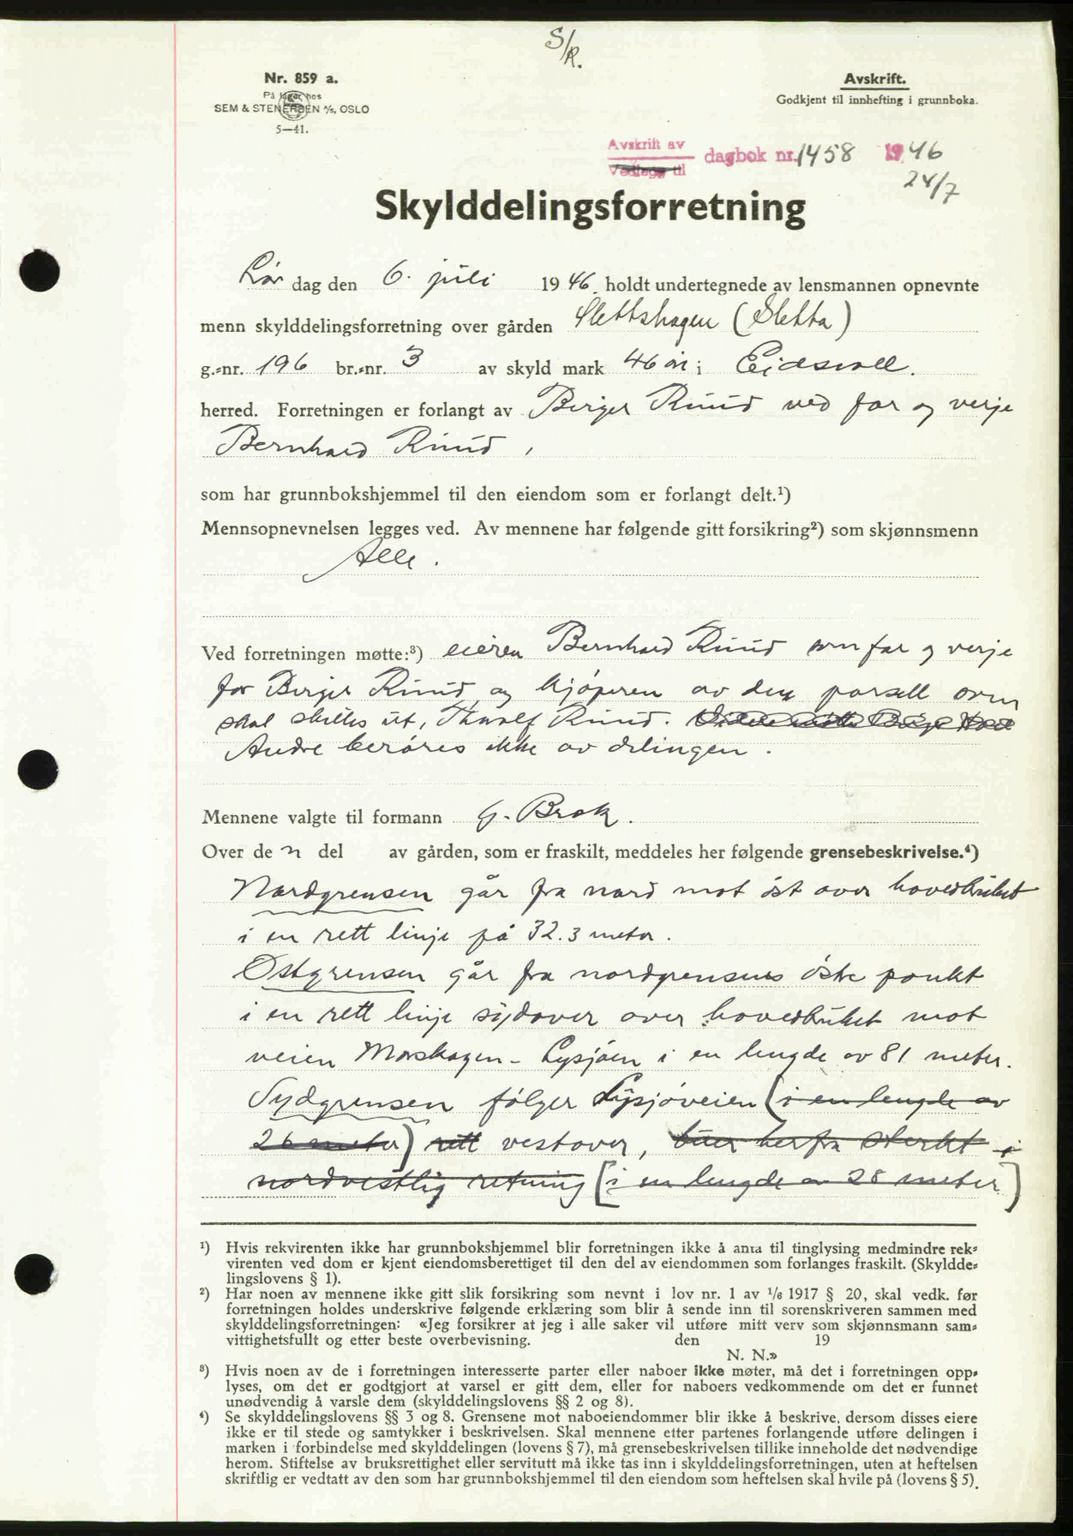 S/R.
Nr. 859 a.
På lager hos
SEM & STENERSEN A/S, OSLO
5—41.
Avskrift.
Godkjent til innhefting i grunnboka.
Avskrift av
Vedlegg til
dagbok nr. 1458 1946
24/7
Skylddelingsforretning
Lør dag den 6. juli 1946. holdt undertegnede av lensmannen opnevnte
menn skylddelingsforretning over gården Slettshagen (Sletta)
g.-nr. 196 br.-nr. 3 av skyld mark 46 øre i Eidsvoll.
herred. Forretningen er forlangt av Birger Ruud ved far og verje
Bernhard Ruud,
som har grunnbokshjemmel til den eiendom som er forlangt delt.¹)
Mennsopnevnelsen legges ved. Av mennene har følgende gitt forsikring²) som skjønnsmenn
Alle.
Ved forretningen møtte:³) eieren Bernhard Ruud som far og verje
for Birger Ruud og kjøperen av den parsell som
skal skilles ut, Thoralf Ruud.
Andre berøres ikke av delingen.
Mennene valgte til formann G. Brok.
Over de n del av gården, som er fraskilt, meddeles her følgende grensebeskrivelse.⁴)
Nordgrensen går fra nord mot øst over hovedbruket
i en rett linje på 32.3 meter.
Østgrensen går fra nordgrensens østre punkt
i en rett linje sydover over hovedbruket mot
veien Morskogen - Lysjøen i en lengde av 81 meter.
Sydgrensen følger Lysjøveien (i en lengde av
26 meter) rett vestover, bøier herfra sterkt i
nordvestlig retning [i en lengde av 28 meter]
¹) Hvis rekvirenten ikke har grunnbokshjemmel blir forretningen ikke å anta til tinglysing medmindre rek-
virenten ved dom er kjent eiendomsberettiget til den del av eiendommen som forlanges fraskilt. (Skyldde-
lingslovens § 1).
²) Har noen av mennene ikke gitt slik forsikring som nevnt i lov nr. 1 av 1/6 1917 § 20, skal vedk. før
forretningen holdes underskrive følgende erklæring som blir å sende inn til sorenskriveren sammen med
skylddelingsforretningen: «Jeg forsikrer at jeg i alle saker vil utføre mitt verv som skjønnsmann sam-
vittighetsfullt og etter beste overbevisning. den 19
N. N.»
³) Hvis noen av de i forretningen interesserte parter eller naboer ikke møter, må det i forretningen opp-
lyses, om det er godtgjort at varsel er gitt dem, eller for naboers vedkommende om det er funnet
unødvendig å varsle dem (skylddelingslovens §§ 2 og 8).
⁴) Se skylddelingslovens §§ 3 og 8. Grensene mot naboeiendommer blir ikke å beskrive, dersom disses eiere
ikke er til stede og samtykker i beskrivelsen. Skal mennene etter partenes forlangende utføre delingen i
marken i forbindelse med skylddelingen (lovens § 7), må grensebeskrivelsen tillike inneholde det nødvendige
herom. Stiftelse av bruksrettighet eller servitutt må ikke tas inn i skylddelingsforretningen, uten at heftelsen
skriftlig er vedtatt av den som har grunnbokshjemmel til den eiendom som heftelsen skal hvile på (lovens § 5).